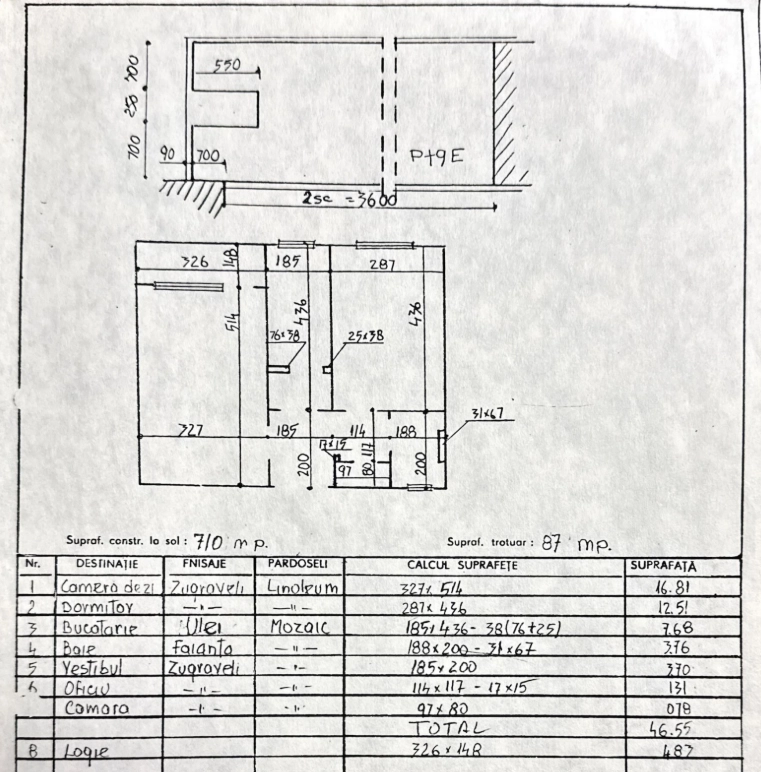 700
550
250
700
90
700
P+9E
2sc = 3600
326
148
185
287
514
436
436
76x38
25x38
31x67
327
185
114
188
17x15
117
200
97
80
200
Supraf. constr. la sol : 710 mp.
Supraf. trotuar : 87 mp.
Nr. DESTINAȚIE FNISAJE PARDOSELI CALCUL SUPRAFEȚE SUPRAFAȚĂ
1 Camera de zi Zugraveli Linoleum 327x 514 16.81
2 Dormitor -"- -"- 287x 436 12.51
3 Bucatarie Ulei Mozaic 185x436-38(76+25) 7.68
4 Baie Faianta -"- 188x200-31x67 3.76
5 Vestibul Zugraveli -"- 185x200 3.70
6 Oficiu -"- -"- 114x117-17x15 1.31
Camara -"- -"- 97x80 0.78
TOTAL 46.55
8 Logie 326x148 4.83